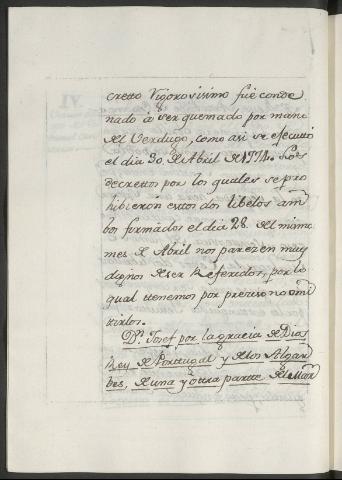 cretto Vigorosisimo fué conde
nado á ser quemado por mano
del Verdugo, como asi se efectuó
el dia 30 de Abril de 1774. Los
decrettos por los quales se pro
hibieron esttos dos libelos am
bos formados el dia 28 del mismo
mes de Abril nos parezen muy
dignos de ser Referidos, por lo
qual ttenemos por preziso no omi
ttirlos.
Dn. Josef por la gracia de Dios
Rey de Porttugal y de los Algar
bes, de una y ottra partte del Mar